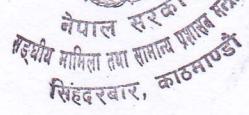 नेपाल सरका
सङ्घीय मामिला तथा सामान्य प्रशासन मन्त्रा
सिंहदरबार, काठमाण्डौ